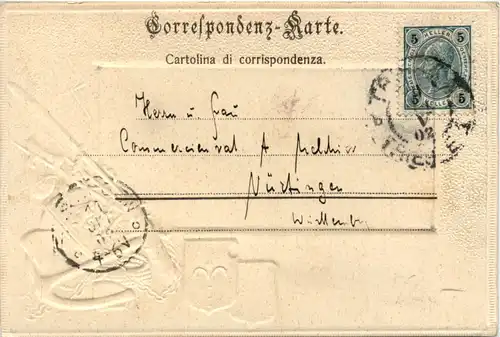 Correspondenz-Karte.
Cartolina di corrispondenza.
5 5
HELLER
5 5
Herrn u. Frau
Commercienrat A Melchior
Nürtingen
Württemberg
02